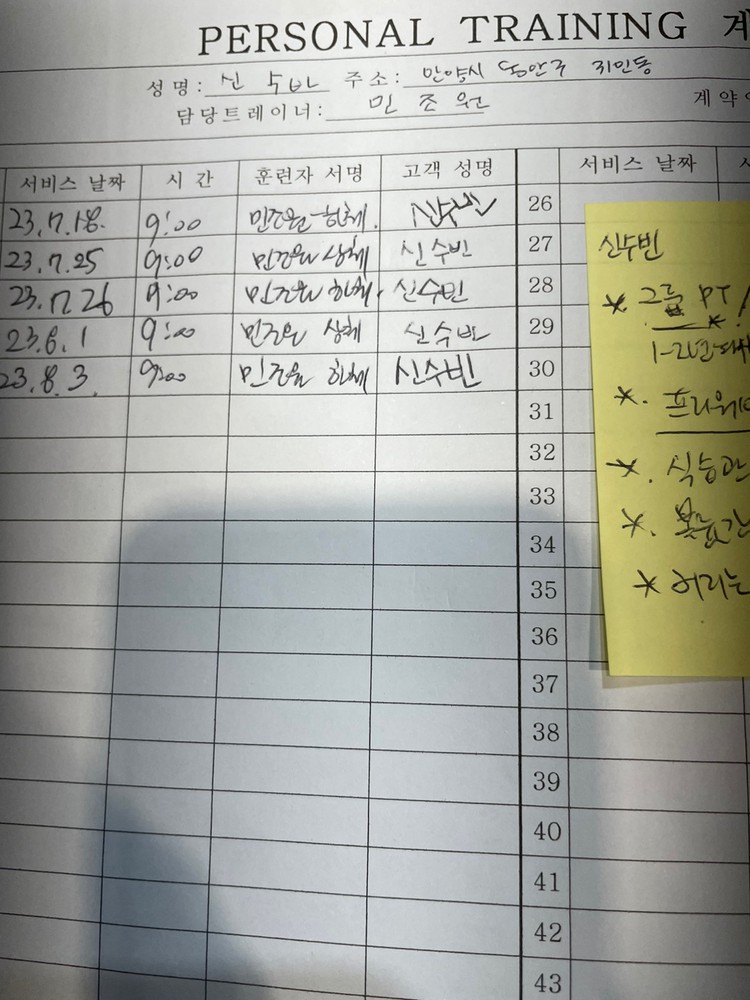 PERSONAL TRAINING 계
성명: 신수빈 주소: 안양시 동안구
담당트레이너: 민조원 계약
서비스 날짜 시 간 훈련자 서명 고객 성명 서비스 날짜
23.7.18. 9:00 민조원 하체. 신수빈 26
23.7.25 9:00 민조원 상체 신수빈 27
23.7.26 9:00 민조원 하체. 신수빈 28
23.8.1 9:00 민조원 상체 신수빈 29
23.8.3. 9:00 민조원 하체 신수빈 30
31
32
33
34
35
36
37
38
39
40
41
42
43
신수빈
* 그룹 PT
1-2년
*. 프리웨
*.
*.
* 허리는